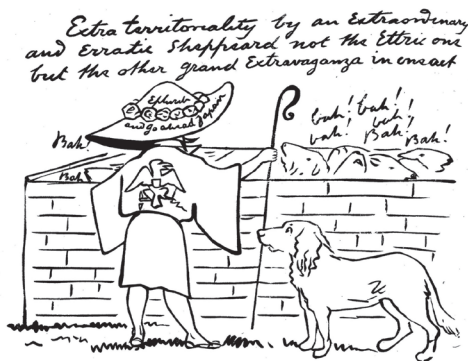 Extra territoriality by an Extraordinary
and Erratic Sheppeard not the Ettric one
but the other grand Extravaganza in one act
and go ahead Japan
Bah!
Bah!
bah! bah!
bah! bah!
Bah! Bah!